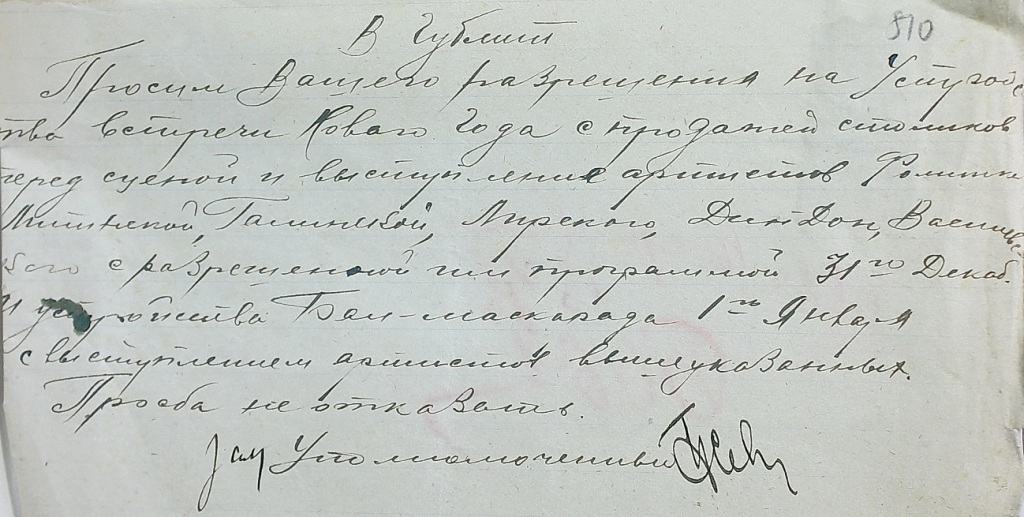 В Гублит 810
Просим Вашего разрешения на Устройс
тво встречи Новаго Года с продажей столиков
перед сценой и выступления артистов
Галинской, Мирского, Дин Дон,
с разрешенной им программой 31го Декаб.
и устройства Бал-маскарада 1го Января
с выступлением артистов вышеуказанных.
Просба не отказать.
Зам Уполномоченный